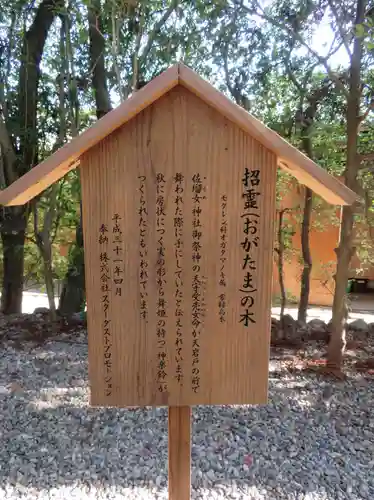 招霊(おがたま)の木
モクレン科オガタマノキ属 常緑高木
佐瑠女神社御祭神の天宇受売命が天岩戸の前で
舞われた際に手にしていたと伝えられています。
秋に房状につく実の形から舞姫の持つ「神楽鈴」が
つくられたとも言われています。
平成三十一年四月
奉納 株式会社 スターダストプロモーション